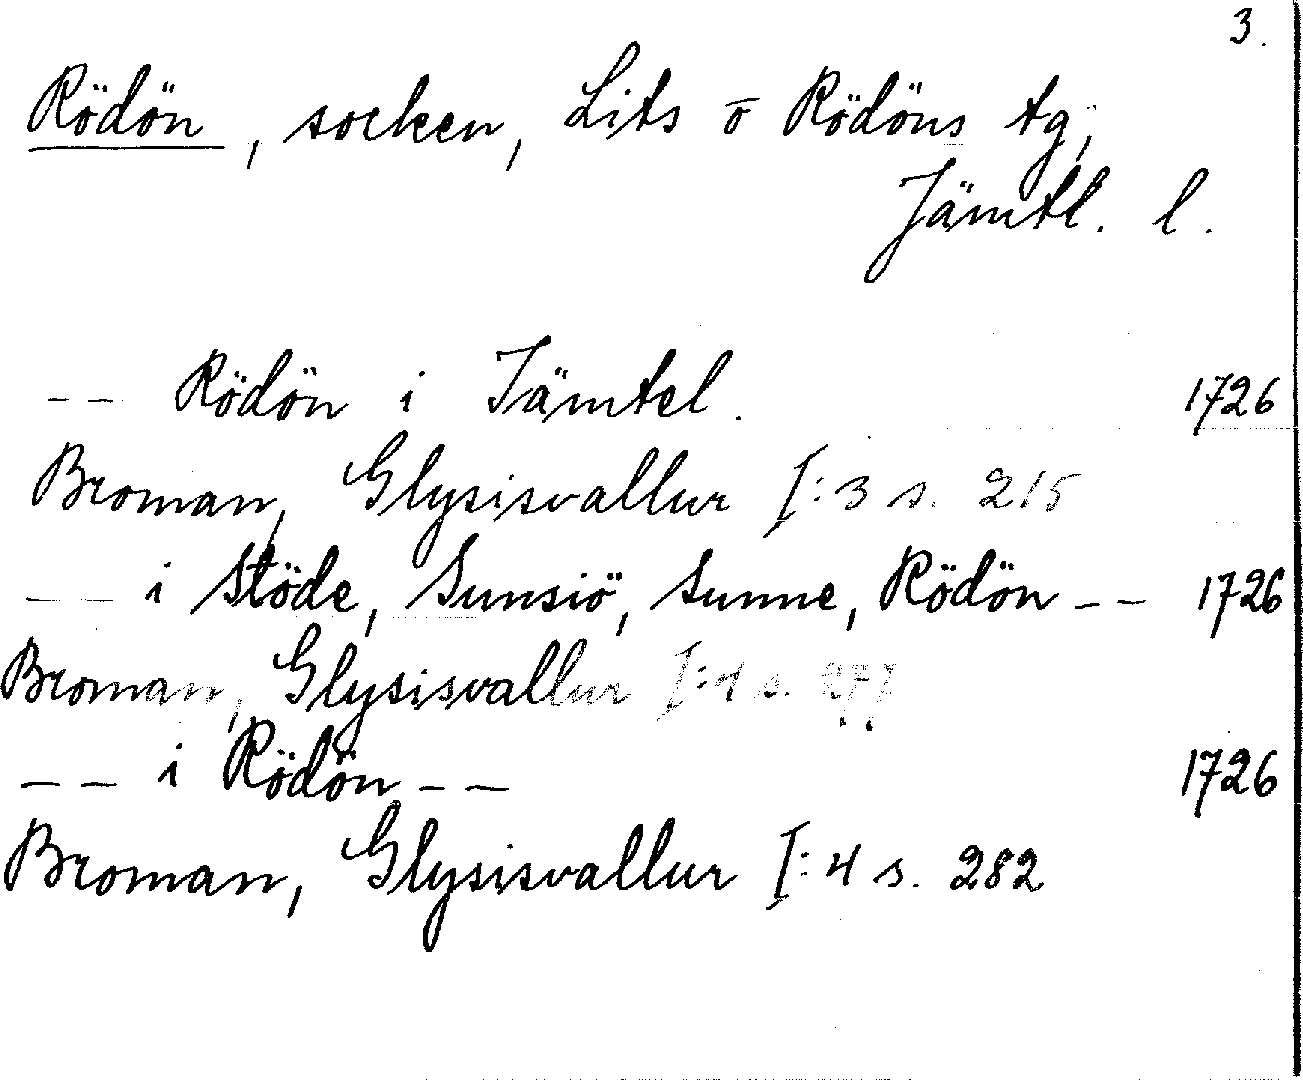 3.
Rödön, socken, Lits o Rödöns tg,
Jämtl. l.
-- Rödön i Jämtel. 1726
Broman, Glysisvallur I:3 s. 215
-- i Stöde, Sunsiö, Sunne, Rödön -- 1726
Broman, Glysisvallur I:4 s. 277
-- i Rödön -- 1726
Broman, Glysisvallur I:4 s. 282